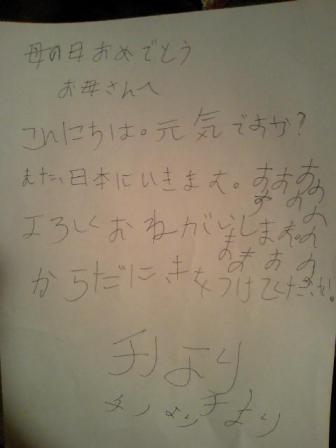 母の日おめでとう
お母さんへ
こんにちは。元気ですか?
また、日本にいきます。
よろしくおねがいします。
からだにきをつけてください。
より
より